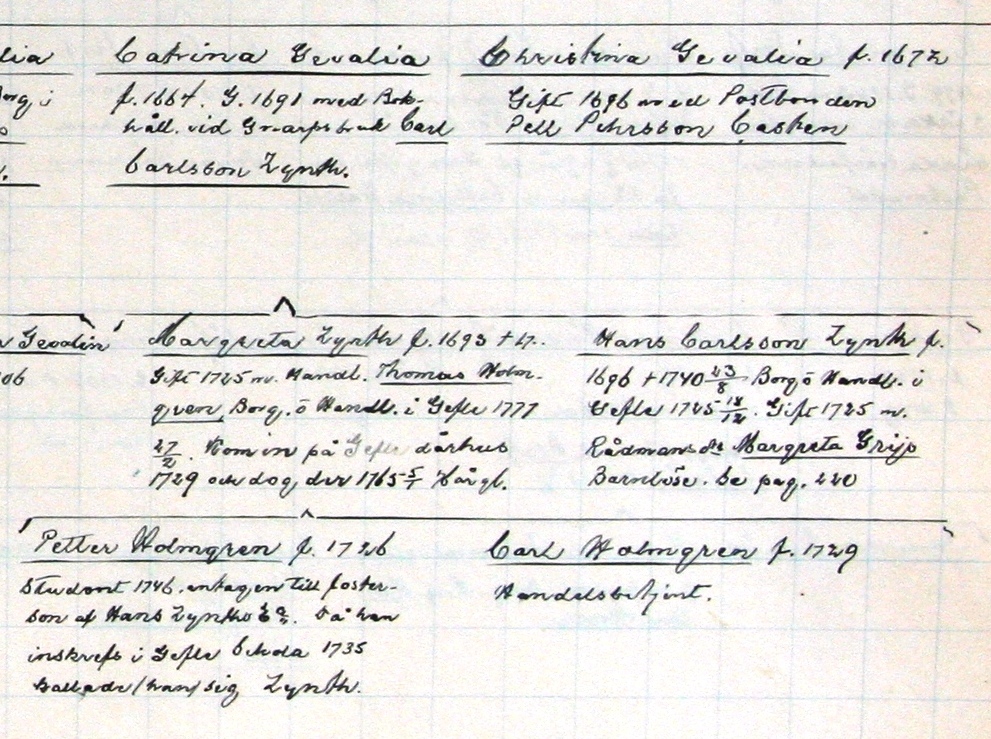 lia
Catrina Gevalia
f. 1664. G. 1691 med Bok-
håll. vid Gnarps bruk Carl
Carlsson Zynth.
Christina Gevalia f. 1672
Gift 1696 med Postbonden
Pell Pehrsson Casken
Gevalin
Margreta Zynth f. 1693 +
Gift 1725 m. Handl. Thomas Holm-
gren, Borg. o Handl. i Gefle 1777
27/2. Kom in på Gefle dårhus
1729 och dog der 1765 5/7
Hans Carlsson Zynth f.
1696 +1740 23/8 Borg o Handl. i
Gefle 1725 18/12. Gift 1725 m.
Rådmans dr Margreta Grijs
Barnlöse. Se pag. 220
Petter Holmgren f. 1726
Student 1746. antagen till foster-
son af Hans Zynth Då han
inskrefs i Gefle Schola 1735
kallade /han/ sig Zynth.
Carl Holmgren f. 1729
Handelsbetjent.